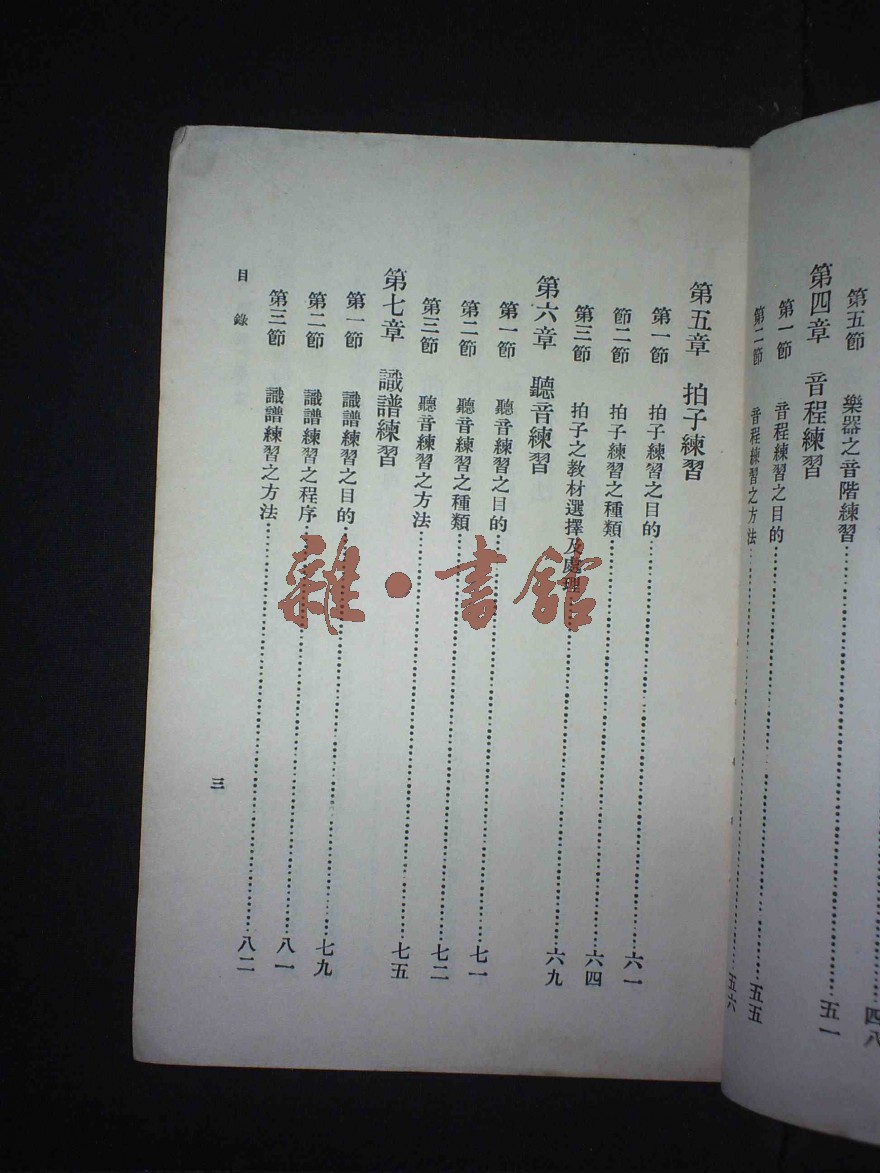 第五節　樂器之音階練習……四八
第四章　音程練習……五一
第一節　音程練習之目的……五五
第二節　音程練習之方法……五六
第五章　拍子練習
第一節　拍子練習之目的……六一
節二節　拍子練習之種類……六四
第三節　拍子之教材選擇及處理……六九
第六章　聽音練習
第一節　聽音練習之目的……七一
第二節　聽音練習之種類……七二
第三節　聽音練習之方法……七五
第七章　識譜練習
第一節　識譜練習之目的……七九
第二節　識譜練習之程序……八一
第三節　識譜練習之方法……八二
目錄
三
雜·書館